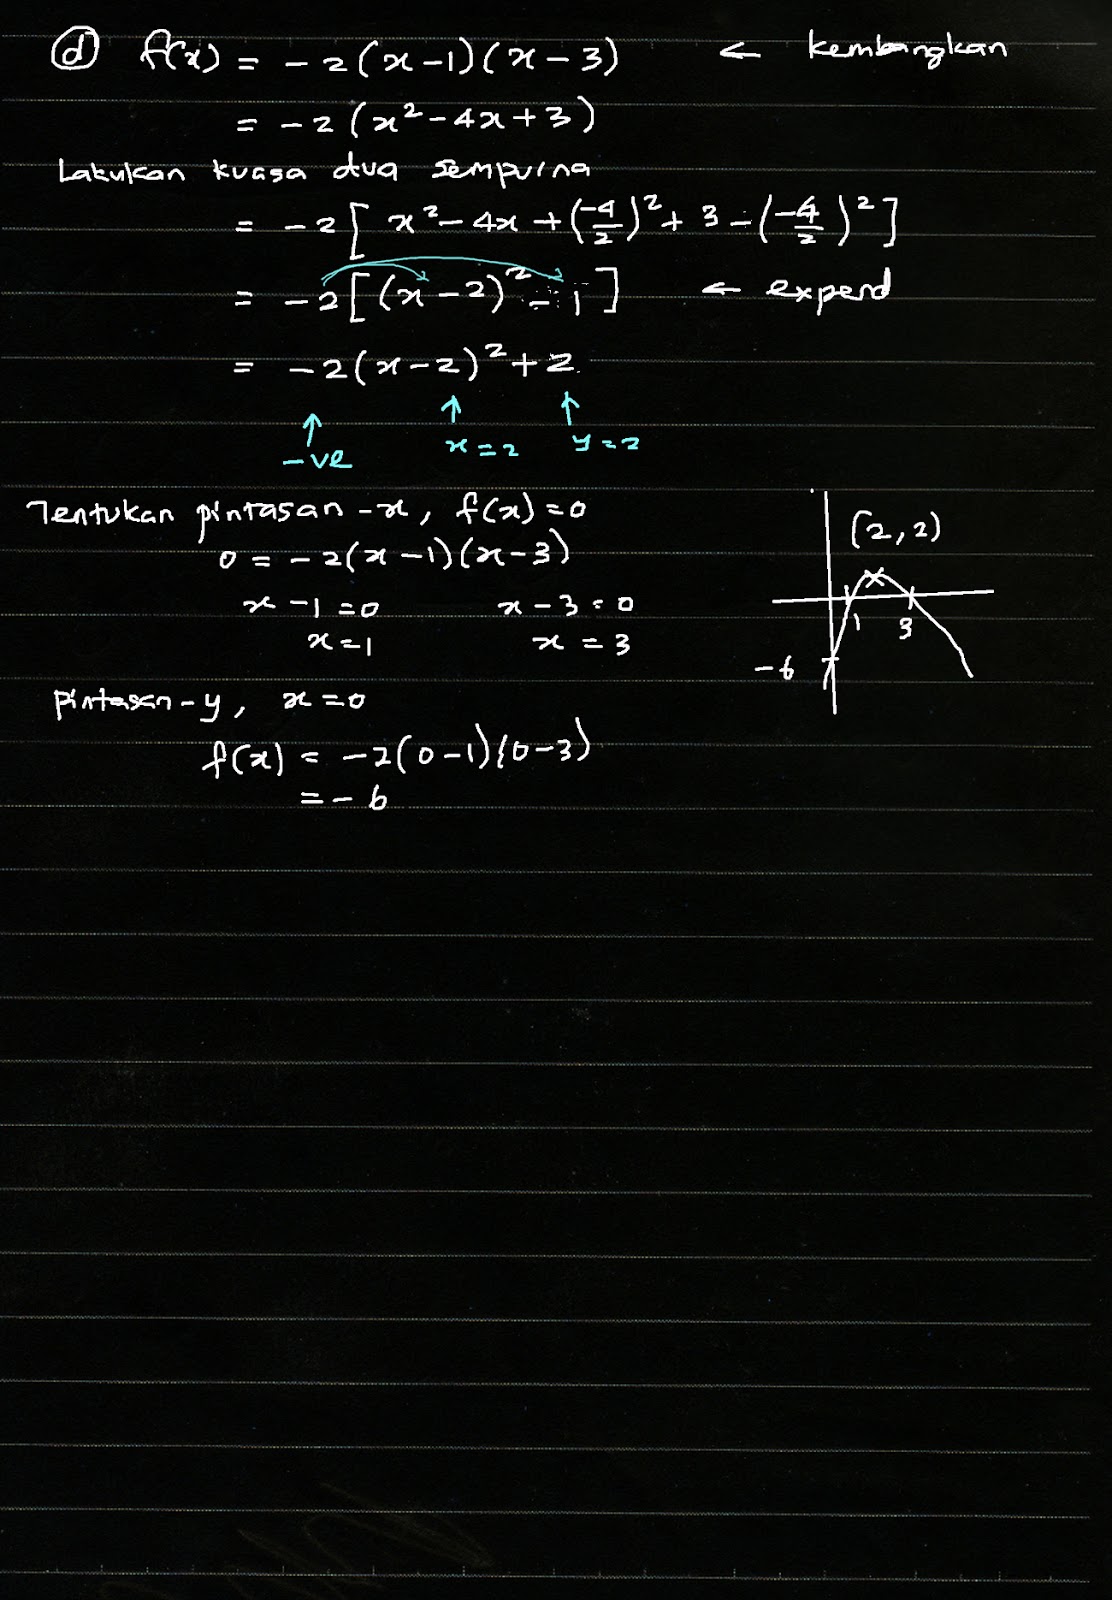 ⓓ f(x) = -2(x-1)(x-3) ← kembangkan
= -2(x²-4x+3)
Lakukan kuasa dua sempurna
= -2[x²-4x+(-4/2)²+3-(-4/2)²]
= -2[(x-2)²-1] ← expend
= -2(x-2)²+2
↑ -ve ↑ x=2 ↑ y=2
Tentukan pintasan-x, f(x)=0
0 = -2(x-1)(x-3)
x-1=0 x-3=0
x=1 x=3
pintasan-y, x=0
f(x) = -2(0-1)(0-3)
=-6
(2,2)
1 3
-6